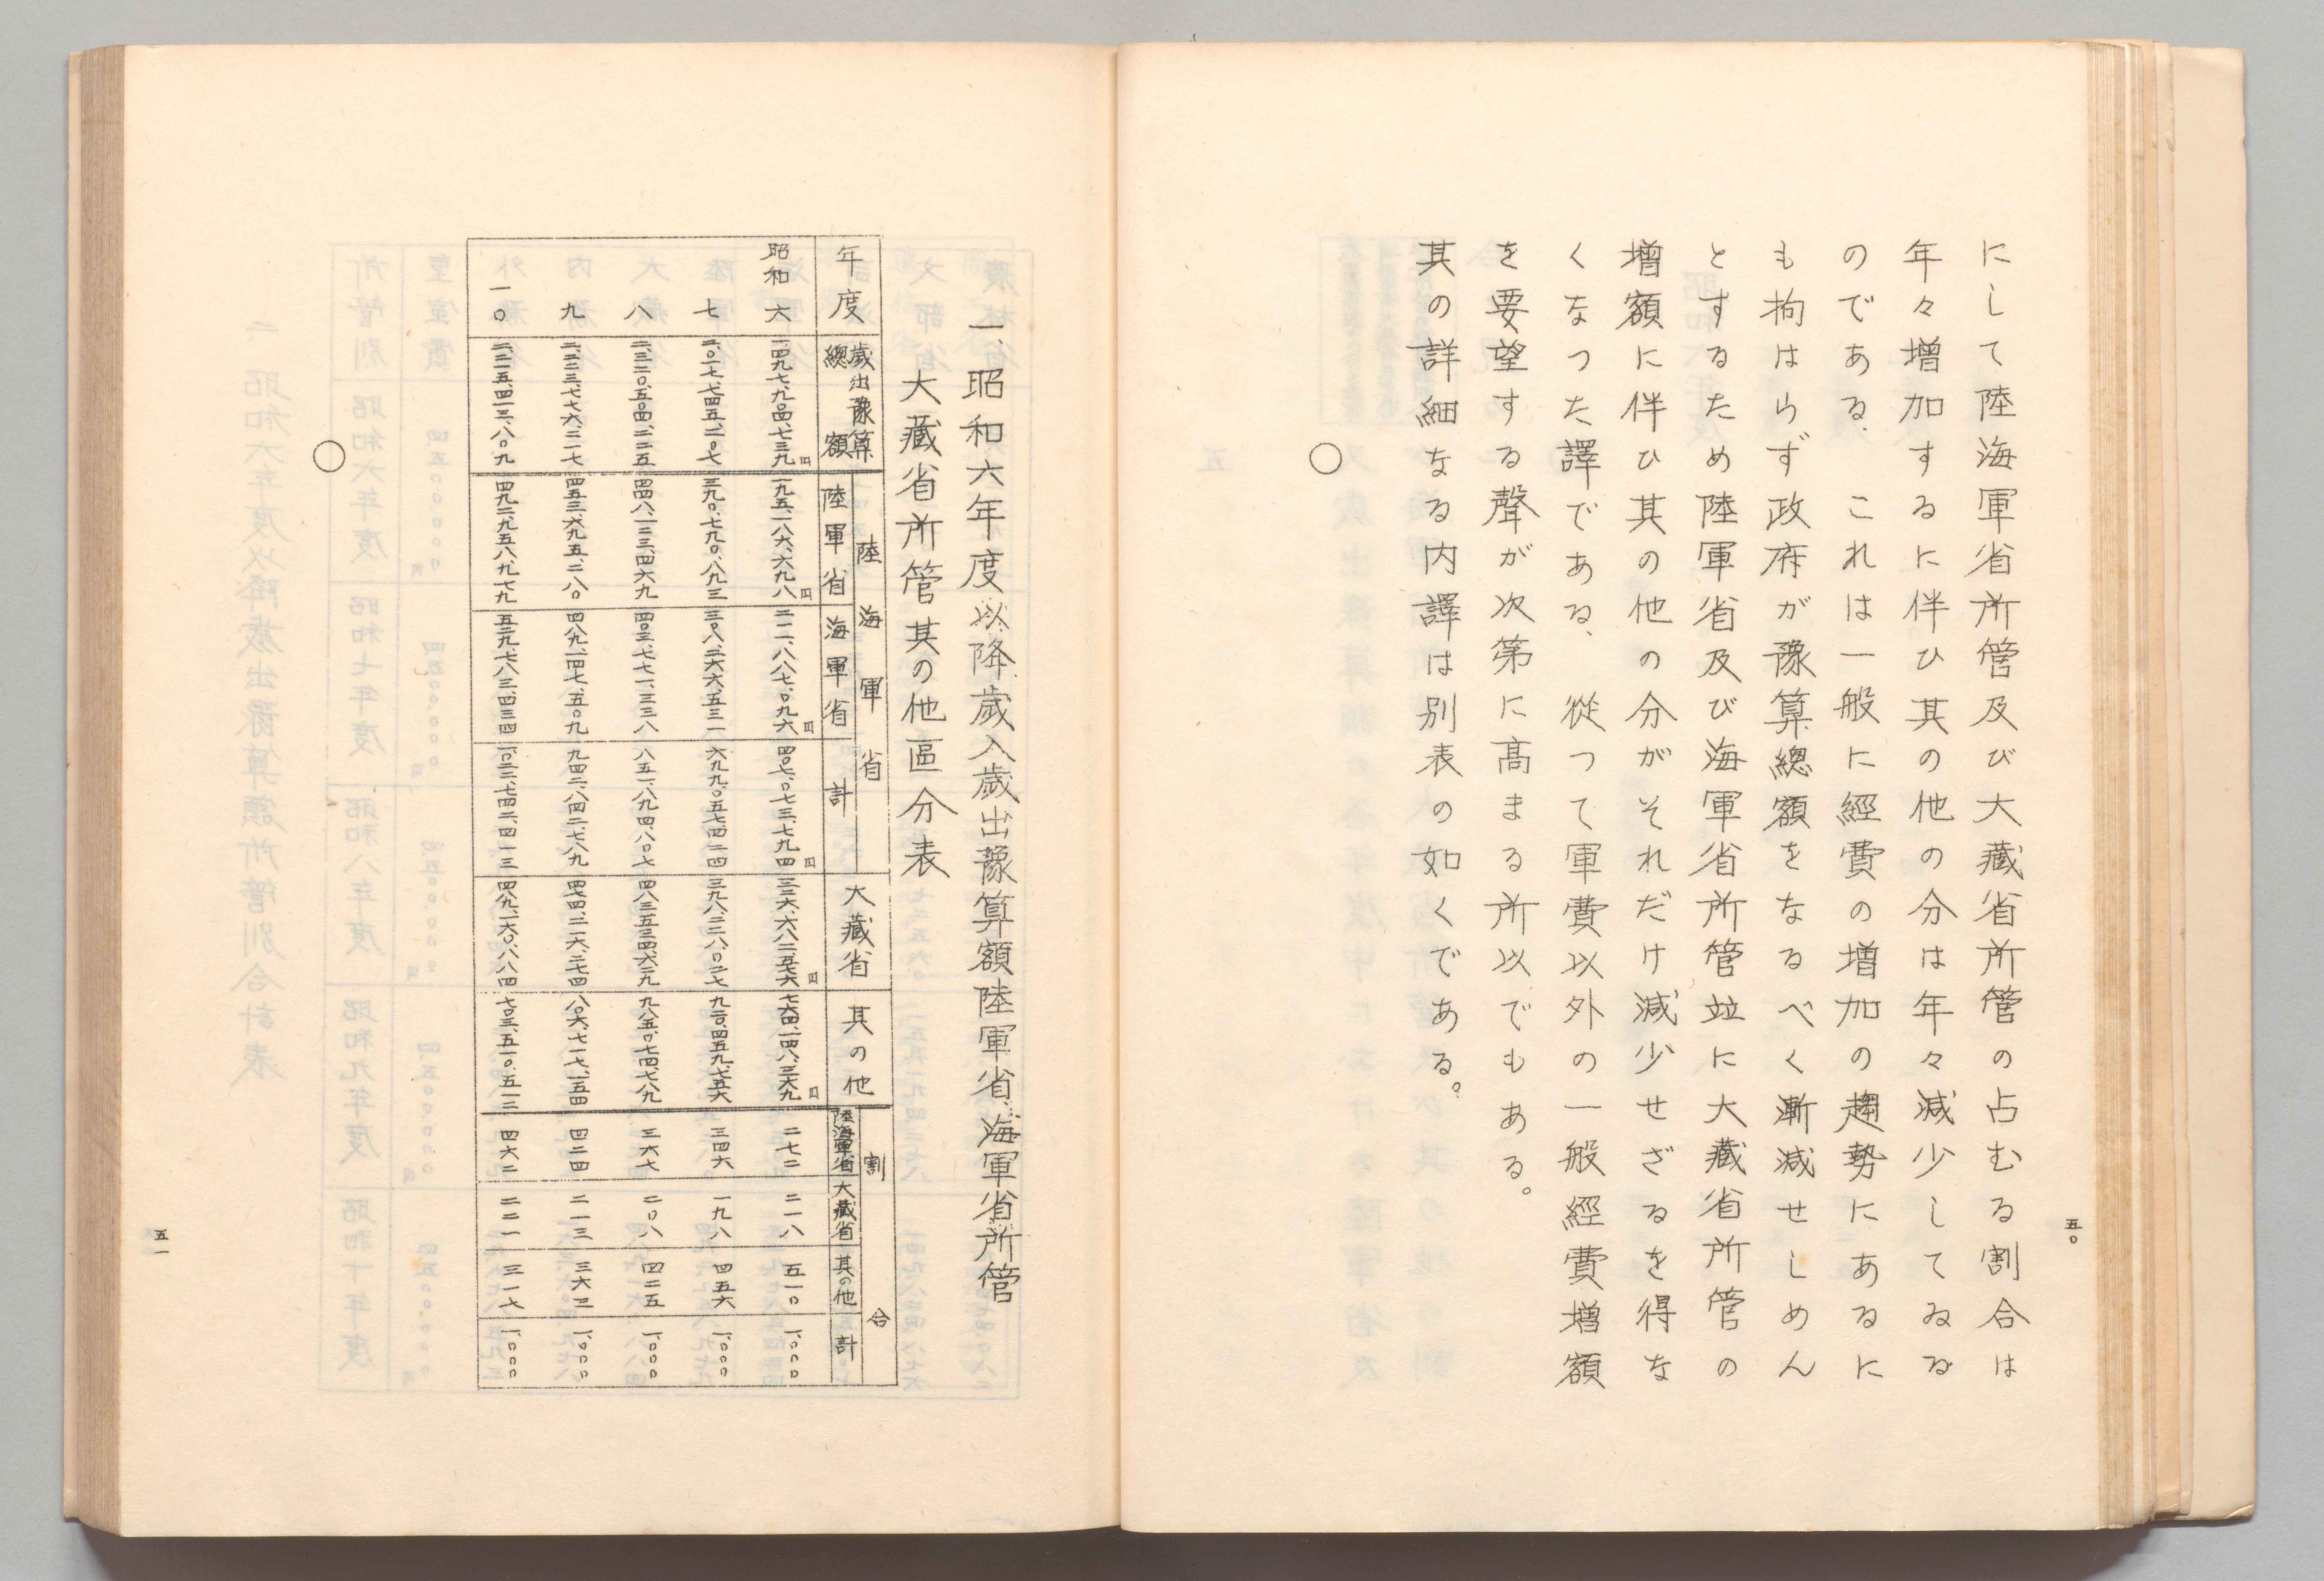 五〇
にして陸海軍省所管及び大藏省所管の占むる割合は
年々増加するに伴ひ其の他の分は年々減少してゐる
のである、これは一般に經費の増加の趨勢にあるに
も拘はらず政府が豫算總額をなるべく漸減せしめん
とするため陸軍省及び海軍省所管竝に大藏省所管の
増額に伴ひ其の他の分がそれだけ減少せざるを得な
くなつた譯である、從つて軍費以外の一般經費増額
を要望する聲が次第に高まる所以でもある。
其の詳細なる内譯は別表の如くである。
一、昭和六年度以降歳入歳出豫算額陸軍省、海軍省所管
大藏省所管其の他區分表
年度 歳出豫算總額 陸海軍省 陸軍省 海軍省 計 大藏省 其の他 割合 陸海軍省 大藏省 其の他 計
昭和六 一、四九七、九〇四、七三九円 一九五、一八六、六九八円 二一一、八八七、〇九六円 四〇七、〇七三、七九四円 三二六、六八二、五七六円 七六四、一四八、三六九円 二七二 二一八 五一〇 一、〇〇〇
七 二、〇一七、七四五、二〇七 三九〇、七九〇、八九三 三〇八、二六六、五三一 六九九、〇五七、四二四 三九八、二二八、〇二七 九二〇、四五九、七五六 三四六 一九八 四五六 一、〇〇〇
八 二、三二〇、五〇四、二二五 四四八、一二三、四六九 四〇三、七七一、三三八 八五一、八九四、八〇七 四八三、五三四、六二九 九八五、〇七四、七八九 三六七 二〇八 四二五 一、〇〇〇
九 二、二二三、七七六、二一七 四五三、六九五、二八〇 四八九、一四七、五〇九 九四二、八四二、七八九 四七四、二一六、二七四 八〇六、七一七、一五四 四二四 二一三 三六三 一、〇〇〇
一〇 二、二一五、四一三、八〇九 四九二、九五八、九七九 五二九、七八三、四三四 一、〇二二、七四二、四一三 四八九、一六〇、八八四 七〇三、五一〇、五一二 四六二 二二一 三一七 一、〇〇〇
五一